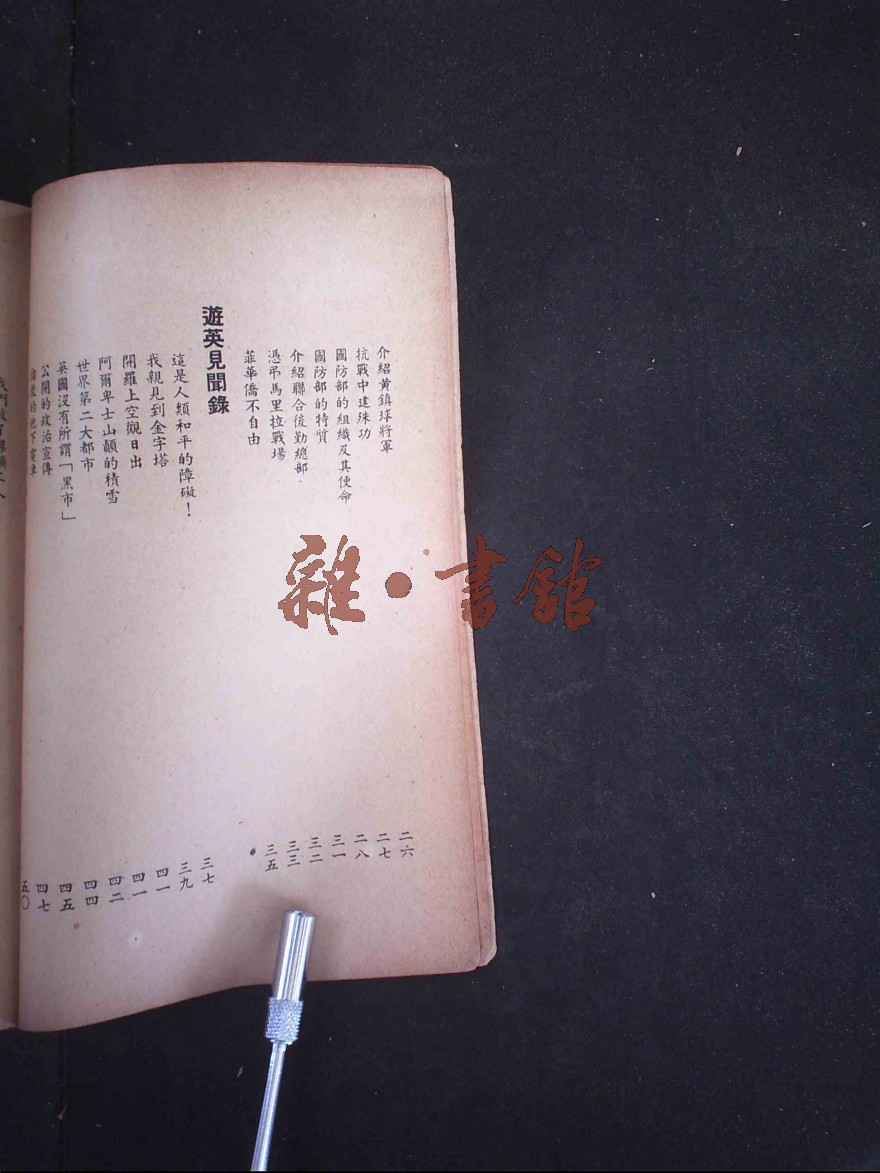 介紹黃鎮球將軍 二六
抗戰中建殊功 二七
國防部的組織及其使命 二八
國防部的特質 三一
介紹聯合後勤總部 三二
憑吊馬里拉戰場 三三
菲華僑不自由 三五
遊英見聞錄 三七
這是人類和平的障礙！ 三九
我親見到金字塔 四一
開羅上空觀日出 四一
阿爾卑士山顛的積雪 四二
世界第二大都市 四四
英國沒有所謂「黑市」 四五
公開的政治宣傳 四七
倫敦的地下電車 五〇
我們
雜·書館